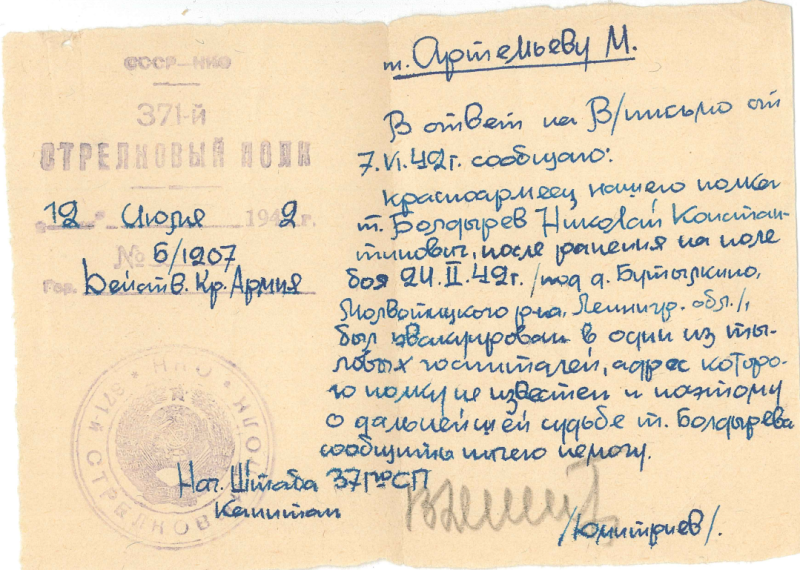 СССР—НКО
371-й
СТРЕЛКОВЫЙ ПОЛК
"12" Июля 1942 г.
№ Б/1207
Гор. Действ. Кр. Армия
т. Артемьеву М.
В ответ на В/письмо от
7.VI.42г. сообщаю:
Красноармеец нашего полка
т. Болдырев Николай Констан-
тинович, после ранения на поле
боя 24.II.42г. /под д. Бутылкино,
Молвотицкого р-на, Ленингр. обл./,
был эвакуирован в один из ты-
ловых госпиталей, адрес которо-
го полку не известен и поэтому
о дальнейшей судьбе т. Болдырева
сообщить ничего немогу.
Нач. Штаба 371го СП
Капитан
/Дмитриев/.
НКО • 371-й СТРЕЛКОВ ПОЛК